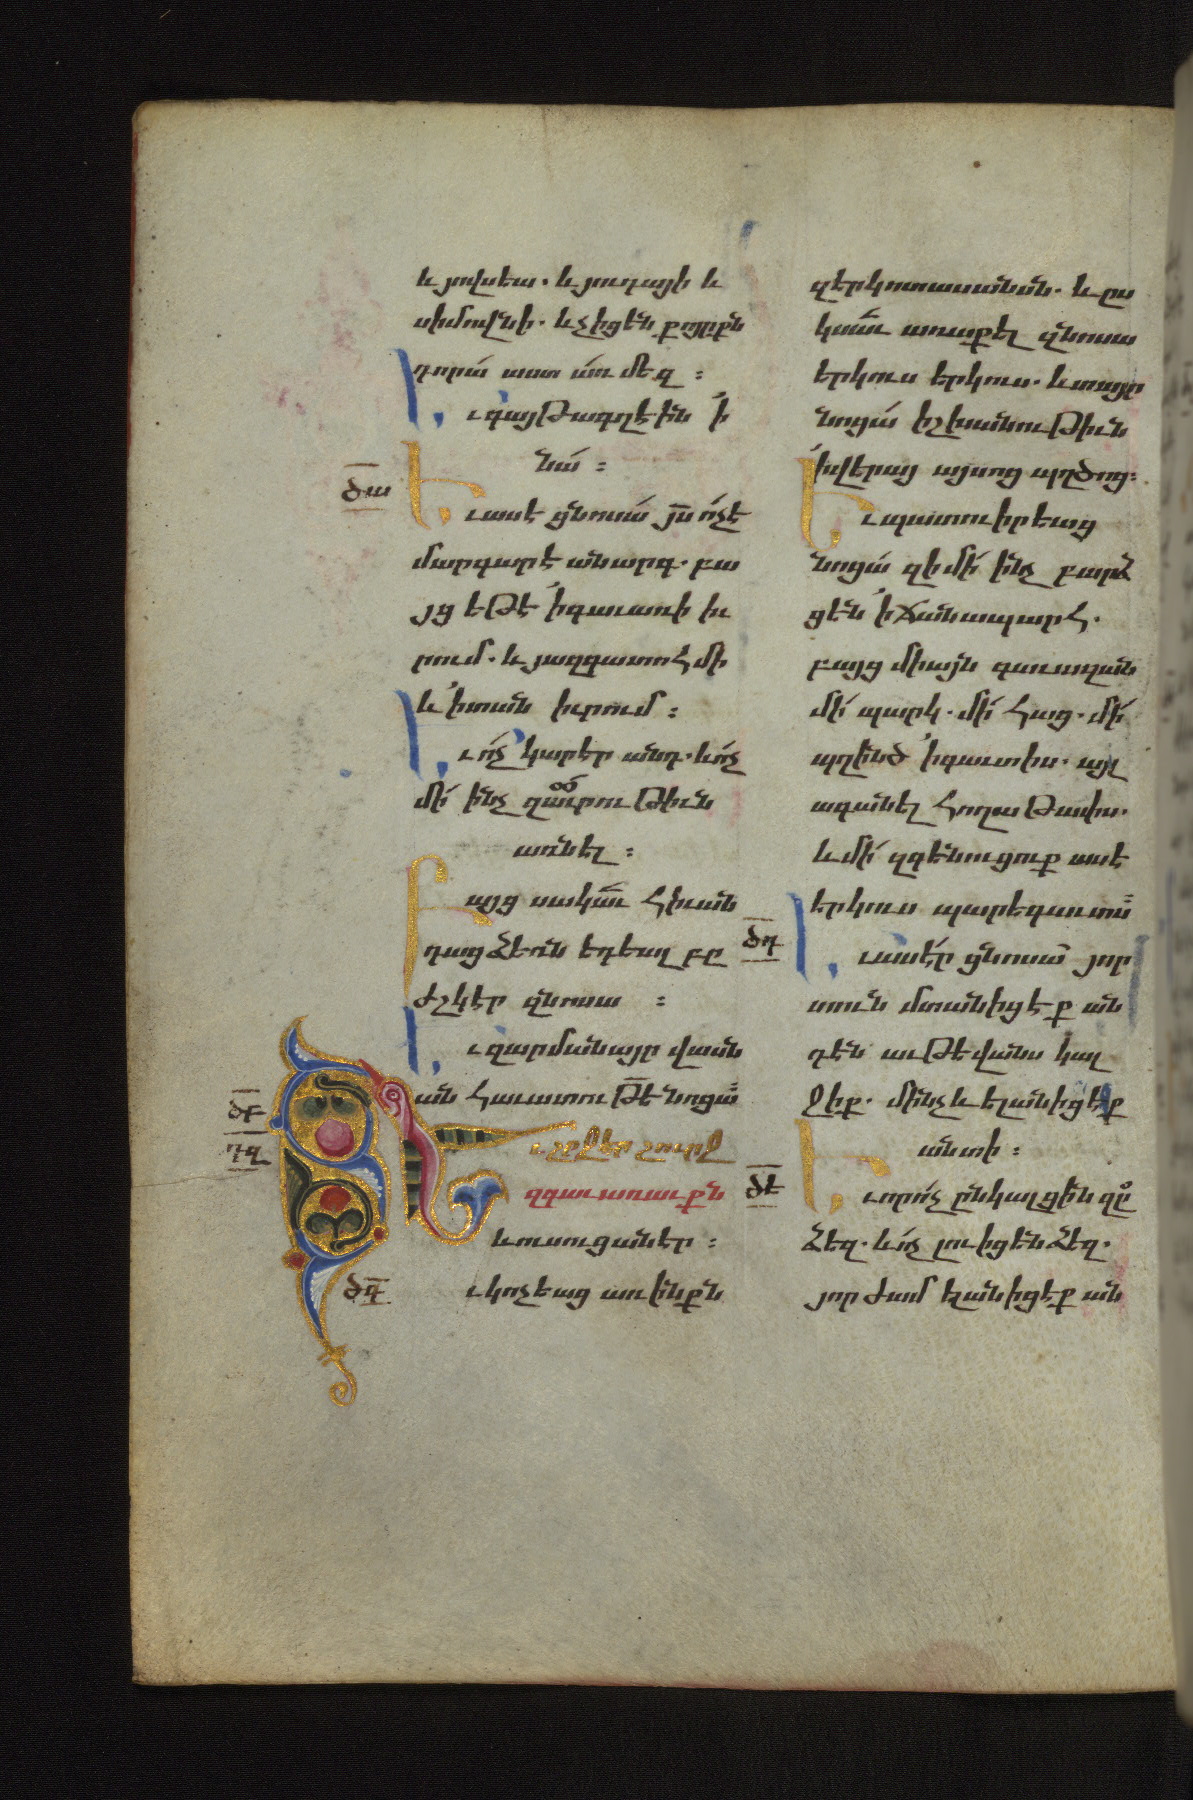 և յովսեա. և յուդայի և
սիմովնի. և չիցեն քոյրքն
դորա աստ առ մեզ :
Եւ գայթագղէին ի
նա :
ծա
Եւ ասէ ցնոսա յս ոչ է
մարգարէ անարգ. բա
յց եթէ ի գաւառի իւ
րում. և յազգատոհմի
և ի տան իւրում :
Եւ ոչ կարէր անդ. և ոչ
մի ինչ զաւրութիւն
առնել :
Բայց սակաւ հիւան
դաց ձեռն եդեալ բը
ժշկէր զնոսա :
Եւ զարմանայր վասն
ան հաւատութե նոցա
ծբ
դզ
Եւ շրջէր շուրջ
զգաւառաւքն
և ուսուցանէր :
ծգ
Եւ կոչեաց առ ինքն
զերկոտասանսն. և ըս
կսաւ առաքել զնոսա
երկուս երկուս. և տայր
նոցա իշխանութիւն
ի վերայ այսոց պղծոց:
Եւ պատուիրեաց
նոցա զի մի ինչ բարձ
ցեն ի ճանապարհ.
բայց միայն գաւազան
մի պարկ. մի հաց. մի
պղինձ ի գաւտիս. այլ
ագանել հողաթափս.
և մի զգենուցուք ասէ
երկուս պարեգաւտս
ծդ
Եւ ասէր ցնոսա յոր
տուն մտանիցէք ան
դէն աւթեվանս կալ
ջիք. մինչև ելանիցէք
անտի :
ծե
Եւ որ ոչ ընկալցին զը
ձեզ. և ոչ լուիցեն ձեզ.
յորժամ ելանիցէք ան